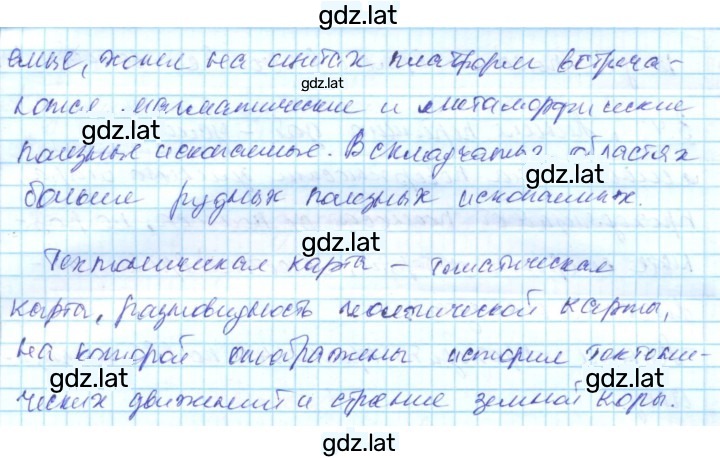 gdz.lat
емые, хотя на щитах платформ встреча-
gdz.lat
ются магматические и метаморфические
gdz.lat
полезные ископаемые. В складчатых областях
gdz.lat
больше рудных полезных ископаемых.
gdz.lat
Тектоническая карта – тематическая
карта, разновидность геологической карты,
gdz.lat
на которой отображены история тектони-
gdz.lat
gdz.lat
ческих движений и строение земной коры.
gdz.lat